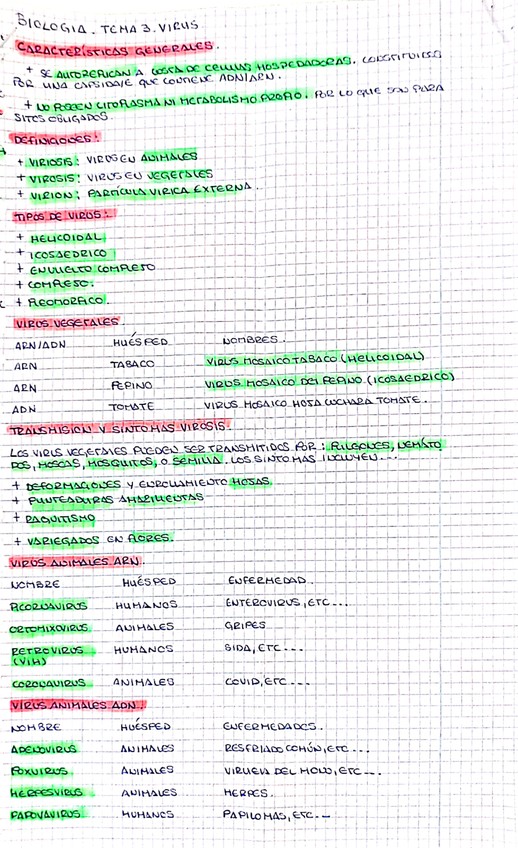 BIOLOGIA. TEMA 3. VIRUS
CARACTERÍSTICAS GENERALES.
+ SE AUTOREPLICAN A COSTA DE CELULAS HOSPEDADORAS. CONSTITUIDOS
POR UNA CAPSIDA/E QUE CONTIENE ADN/ARN.
+ NO POSEEN CITOPLASMA NI METABOLISMO PROPIO. POR LO QUE SON PARA
SITOS OBLIGADOS.
DEFINICIONES:
+ VIRIOSIS: VIRUS EN ANIMALES
+ VIROSIS: VIRUS EN VEGETALES
+ VIRION: PARTÍCULA VIRICA EXTERNA.
TIPOS DE VIRUS:
+ HELICOIDAL
+ ICOSAEDRICO
+ ENVUELTO COMPLETO
+ COMPLEJO.
+ PLEOMORFICO.
VIRUS VEGETALES.
ARN/ADN HUÉSPED NOMBRES.
ARN TABACO VIRUS MOSAICO TABACO (HELICOIDAL)
ARN PEPINO VIRUS MOSAICO DEL PEPINO (ICOSAEDRICO)
ADN TOMATE VIRUS MOSAICO HOJA CUCHARA TOMATE.
TRANSMISION Y SINTOMAS VIROSIS.
LOS VIRUS VEGETALES PUEDEN SER TRANSMITIDOS POR: PULGONES, NEMÁTO
DOS, MOSCAS, MOSQUITOS, O SEMILLA. LOS SINTOMAS INCLUYEN...
+ DEFORMACIONES Y ENROLLAMIENTO HOJAS.
+ PUNTEADURAS AMARILLENTAS
+ RAQUITISMO
+ VARIEGADOS EN FLORES.
VIRUS ANIMALES ARN.
NOMBRE HUÉSPED ENFERMEDAD.
PICORNAVIRUS HUMANOS ENTEROVIRUS, ETC...
ORTOMIXOVIRUS ANIMALES GRIPES
RETROVIRUS HUMANOS SIDA, ETC...
(VIH)
CORONAVIRUS ANIMALES COVID, ETC...
VIRUS ANIMALES ADN.
NOMBRE HUÉSPED ENFERMEDADES.
ADENOVIRUS ANIMALES RESFRIADO COMÚN, ETC...
POXVIRUS ANIMALES VIRUELA DEL MONO, ETC...
HERPESVIRUS ANIMALES HERPES.
PAPOVAVIRUS HUMANOS PAPILOMAS, ETC...